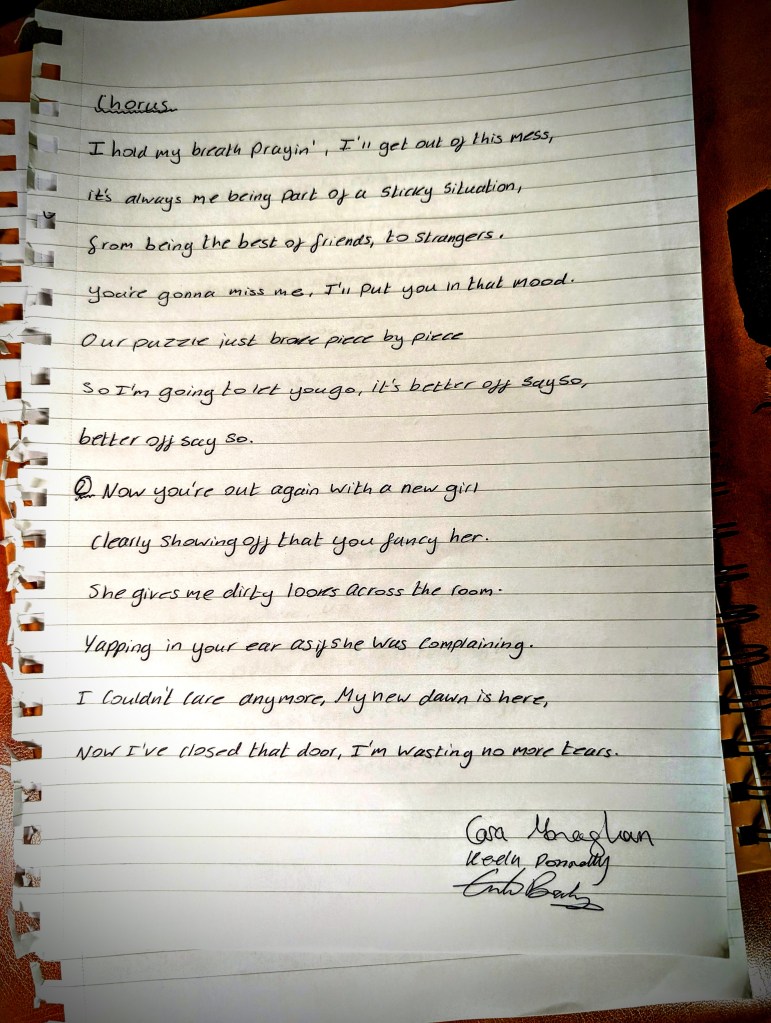 Chorus
I hold my breath prayin', I'll get out of this mess,
it's always me being part of a sticky situation,
from being the best of friends, to strangers.
You're gonna miss me, I'll put you in that mood.
Our puzzle just broke piece by piece
So I'm going to let you go, it's better off say so,
better off say so.
② Now you're out again with a new girl
Clearly showing off that you fancy her.
She gives me dirty looks across the room.
Yapping in your ear as if she was complaining.
I couldn't care anymore, My new dawn is here,
Now I've closed that door, I'm wasting no more tears.
Cara Monaghan
Donnelly